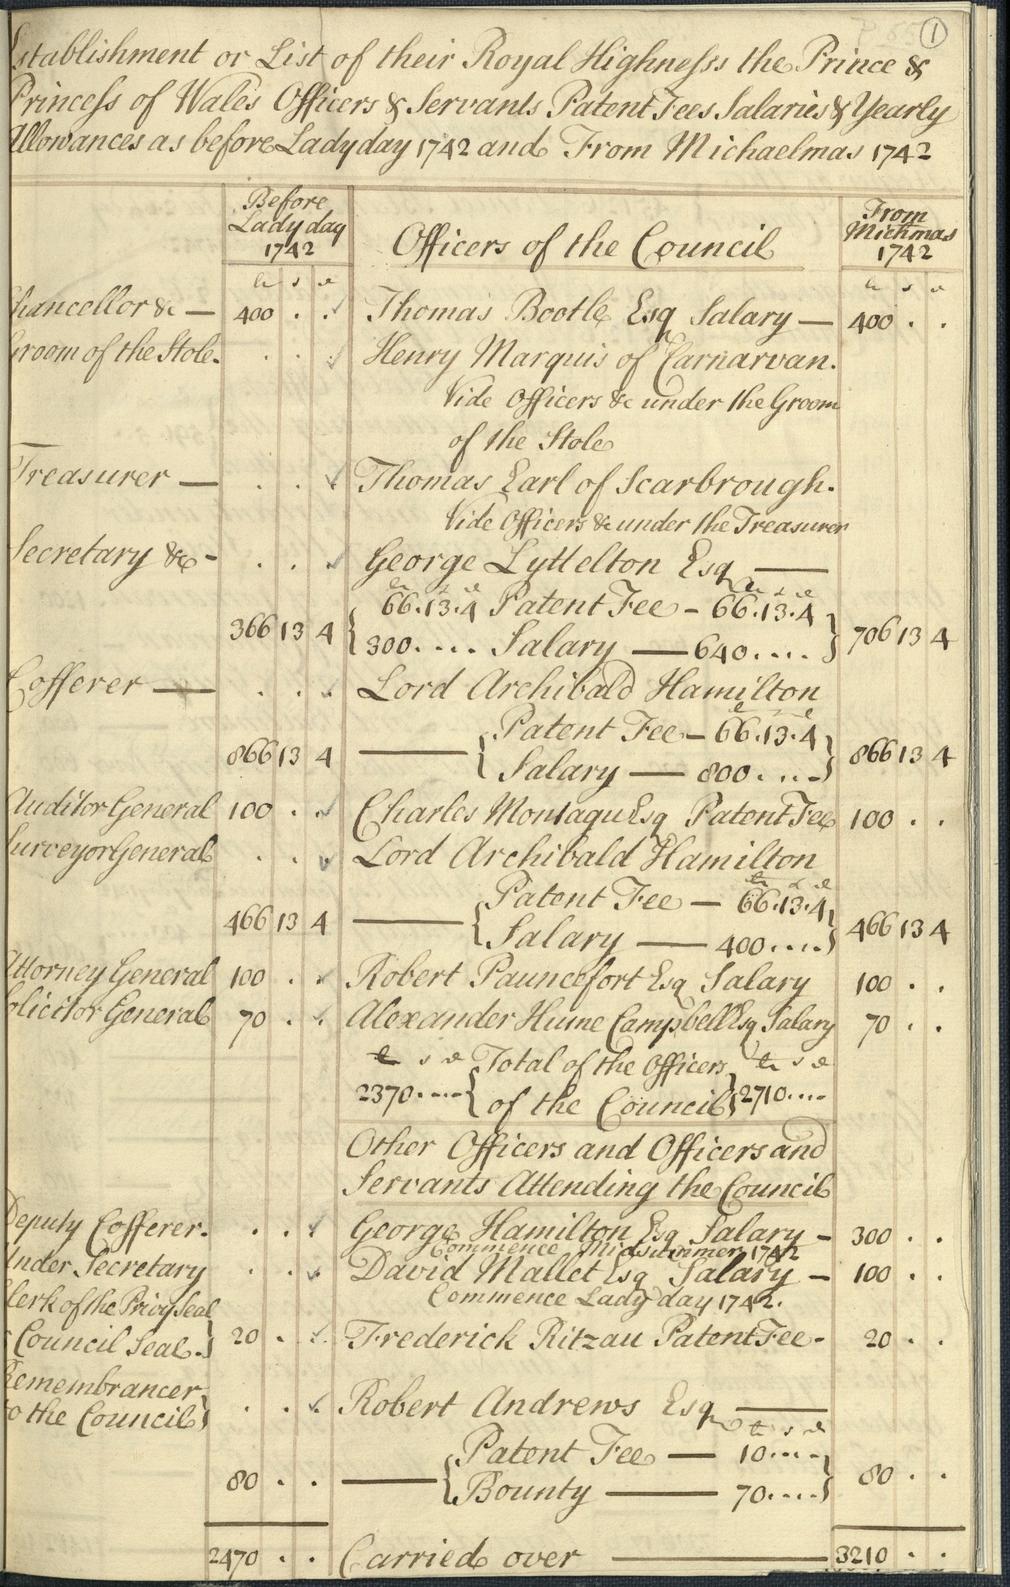 1
Establishment or List of their Royal Highness the Prince &
Princess of Wales Officers & Servants Patent Fees Salaries & Yearly
Allowances as before Ladyday 1742 and From Michaelmas 1742
Before Lady day 1742
Officers of the Council
From Michmas 1742
li s d
li s d
Chancellor &c — 400 . . Thomas Bootle Esq Salary — 400 . .
Groom of the Stole. . . . Henry Marquis of Carnarvan.
Vide Officers &c under the Groom
of the Stole
Treasurer — . . . Thomas Earl of Scarbrough.
Vide Officers &c under the Treasurer
Secretary &c - . . . George Lyttelton Esq —
li s d li s d
66.13.4 Patent Fee - 66.13.4
366 13 4 { 300.... Salary — 640.... } 706 13 4
Cofferer — . . . Lord Archibald Hamilton
li s d
Patent Fee - 66.13.4
866 13 4 — { Salary — 800.... } 866 13 4
Auditor General 100 . . Charles Montagu Esq Patent Fee 100 . .
Surveyor General . . . Lord Archibald Hamilton
li s d
Patent Fee — 66.13.4
466 13 4 — { Salary — 400.... } 466 13 4
Attorney General 100 . . Robert Pauncefort Esq Salary 100 . .
Solicitor General 70 . . Alexander Hume Campbell Esq Salary 70 . .
li s d Total of the Officers li s d
2370.... { of the Council } 2710....
Other Officers and Officers and
Servants Attending the Council
Deputy Cofferer. . . . George Hamilton Esq Salary - 300 . .
Commence Midsummer 1742
Under Secretary . . . David Mallet Esq Salary - 100 . .
Commence Lady day 1742.
Clerk of the Privy Seal
& Council Seal. } 20 . . Frederick Ritzau Patent Fee - 20 . .
Remembrancer
to the Council } . . . Robert Andrews Esq —
li s d
Patent Fee — 10....
80 . . — { Bounty — 70.... } 80 . .
2470 . . Carried over — 3210 . .